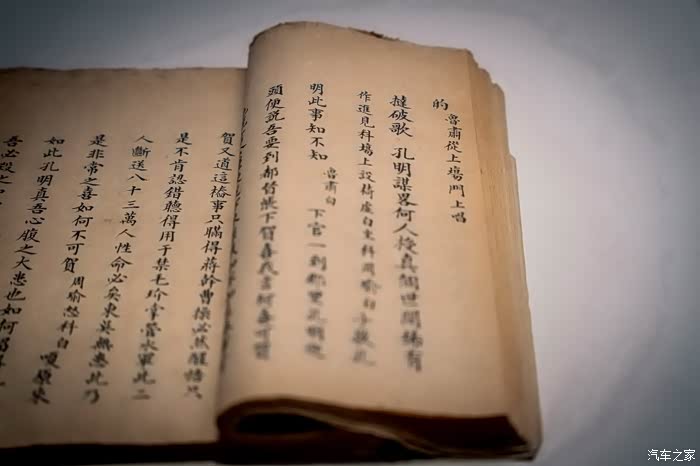 的 魯肅從上塲門上唱
撻破歌 孔明謀畧何人授真個世間稀有
作進見科塲上設椅虛白坐科周瑜白子敬孔
明此事知不知 魯肅白 下官一到那里孔明迎
頭便說吾要到都督帳下賀喜我言何喜可賀
賀又道這樁事只瞞得蔣幹曹操必然醒悟只
是不肯認錯聽得用于禁毛玠掌管水軍此二
人斷送八十三萬人性命必矣東吳無患此乃
是非常之喜如何不可賀 周瑜怒科白 嗄原來
如此孔明真吾心腹之大患也如何
吾必殺之
汽车之家